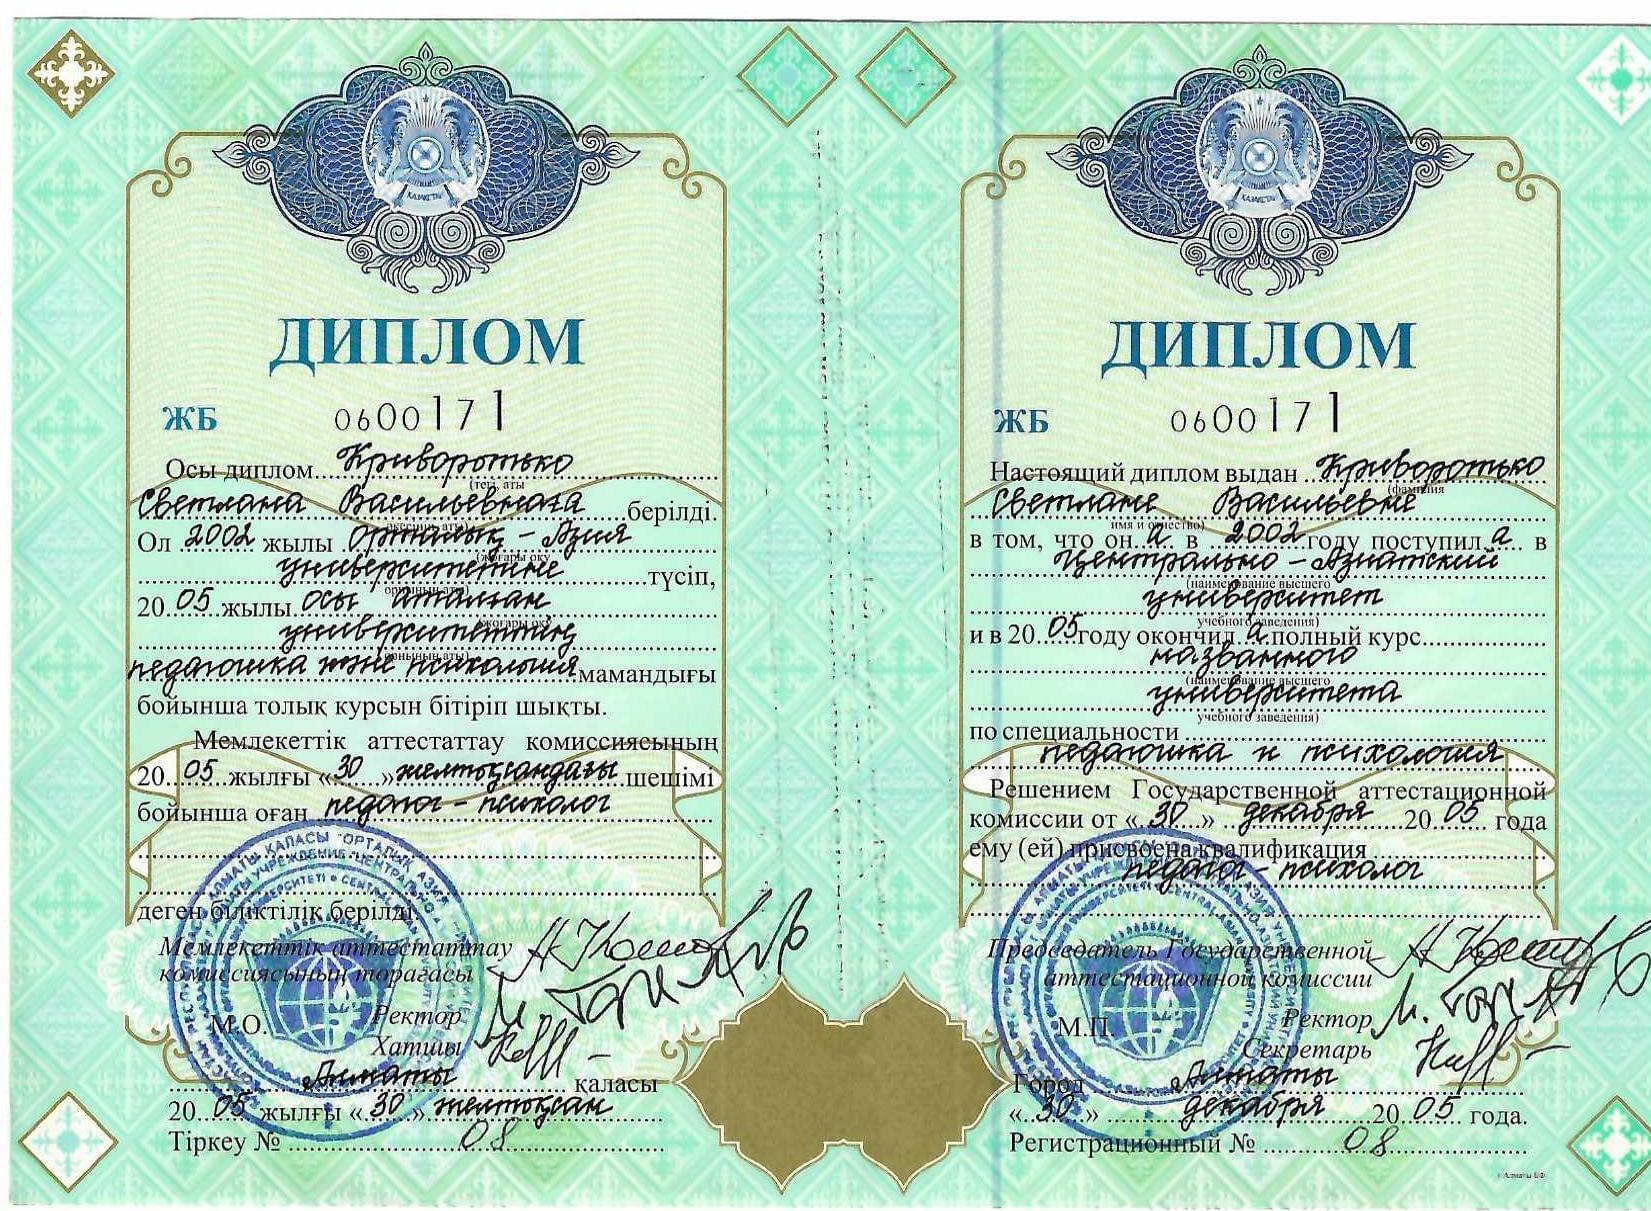 ДИПЛОМ
ЖБ 0600171
Осы диплом Криворотько
(тегі, аты
Светлана Васильевнаға берілді.
әкесінің аты)
Ол 2002 жылы Орталық - Азия
(жоғары оқу
университетіне түсіп,
орнының аты)
20 05 жылы осы аталған
(жоғары оқу
университеттің
орнының аты)
педагогика және психология мамандығы
бойынша толық курсын бітіріп шықты.
Мемлекеттік аттестаттау комиссиясының
20 05 жылғы «30» желтоқсандағы шешімі
бойынша оған педагог - психолог
деген біліктілік берілді.
Мемлекеттік аттестаттау
комиссиясының төрағасы
М.О. Ректор
Хатшы
Алматы қаласы
20 05 жылғы «30» желтоқсан
Тіркеу № 08
ДИПЛОМ
ЖБ 0600171
Настоящий диплом выдан Криворотько
(фамилия
Светлане Васильевне
имя и отчество)
в том, что он а в 2002 году поступил а в
Центрально - Азиатский
(наименование высшего
университет
учебного заведения)
и в 20 05 году окончил а полный курс
названного
(наименование высшего
университета
учебного заведения)
по специальности
педагогика и психология
Решением Государственной аттестационной
комиссии от «30» декабря 20 05 года
ему (ей) присвоена квалификация
педагог - психолог
Председатель Государственной
аттестационной комиссии
М.П. Ректор
Секретарь
Город Алматы
«30» декабря 20 05 года.
Регистрационный № 08